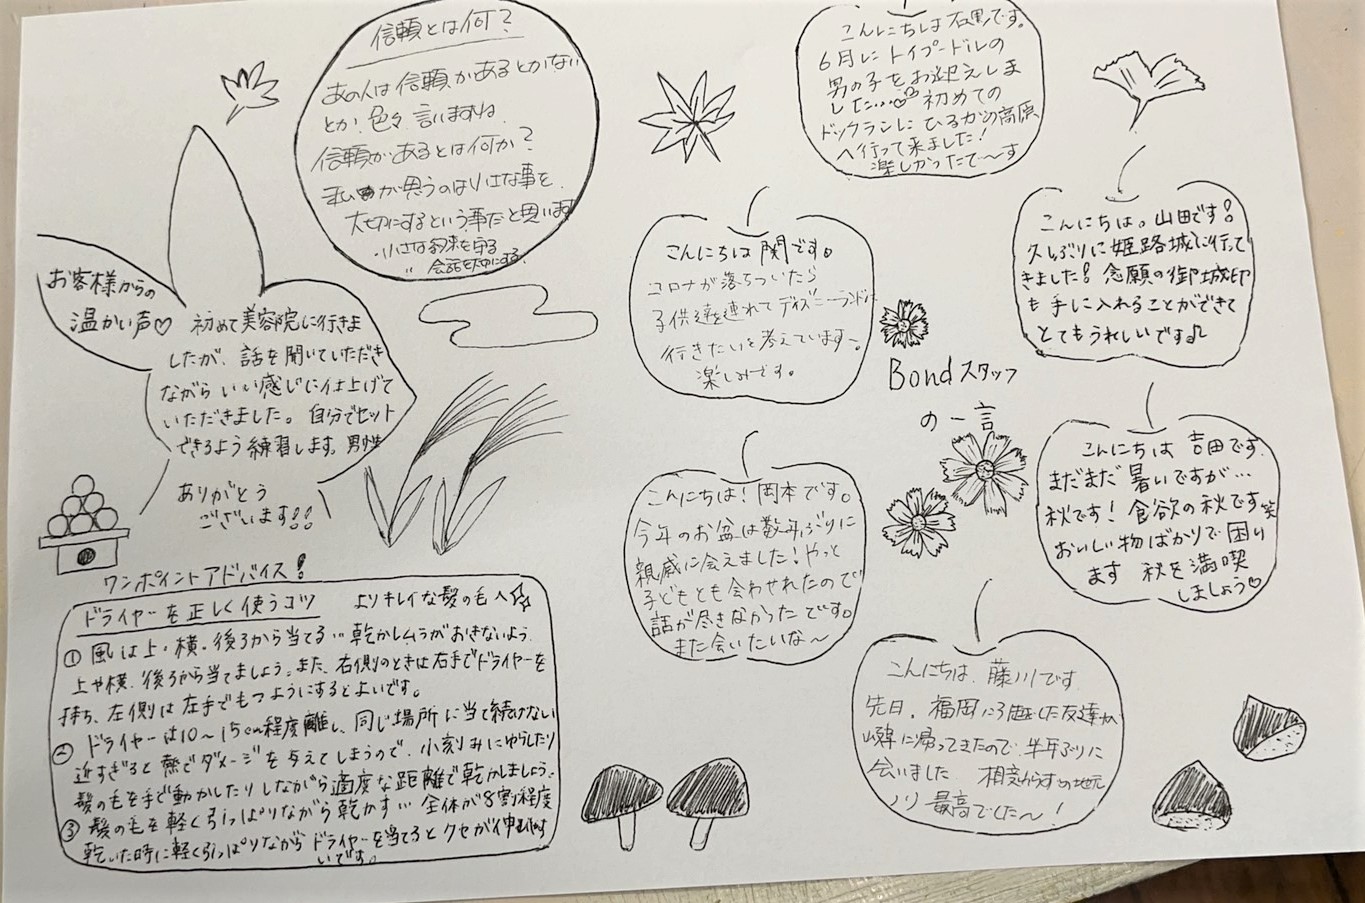 信頼とは何?
あの人は信頼があるとかない
とか、色々、言いますね
信頼があるとは何か?
私が思うのは小さな事を
大切にするという事だと思います
・小さな約束を守る
〃 会話を大切にする
お客様からの
温かい声♡
初めて美容院に行きま
したが、話を聞いていただき
ながら いい感じに仕上げて
いただきました。自分でセット
できるよう練習します。男性
ありがとう
ございます!!
ワンポイントアドバイス!
ドライヤーを正しく使うコツ よりキレイな髪の毛へ☆
① 風は上・横・後ろから当てる… 乾かしムラがおきないよう
上や横、後ろから当てましょう。また、右側のときは右手でドライヤーを
持ち、左側は左手でもつようにするとよいです。
② ドライヤーは10〜15cm程度離し、同じ場所に当て続けない
近すぎると熱でダメージを与えてしまうので、小刻みにゆらしたり
髪の毛を手で動かしたりしながら適度な距離で乾かしましょう。
③ 髪の毛を軽く引っぱりながら乾かす… 全体が8割程度
乾いた時に軽く引っぱりながらドライヤーを当てるとクセが伸びやす
いです。
こんにちは 石黒です。
6月にトイプードルの
男の子をお迎えしま
した…♡ 初めての
ドックランに ひるがの高原
へ行って来ました!
楽しかったで〜す
こんにちは 関です。
コロナが落ちついたら
子供達を連れてディズニーランドに
行きたいを考えています〜
楽しみです。
こんにちは。山田です!
久しぶりに姫路城に行って
きました! 念願の御城印
も手に入れることができて
とてもうれしいです♪
Bondスタッフ
の一言
こんにちは! 岡本です。
今年のお盆は数年ぶりに
親戚に会えました! やっと
子どもとも会わせれたので
話が尽きなかったです。
また会いたいな〜
こんにちは 吉田です。
まだまだ暑いですが…
秋です! 食欲の秋です笑
おいしい物ばかりで困り
ます 秋を満喫
しましょう♡
こんにちは、藤川です
先日、福岡に引越した友達が
岐阜に帰ってきたので、半年ぶりに
会いました 相変らずの地元
ノリ 最高でした〜!